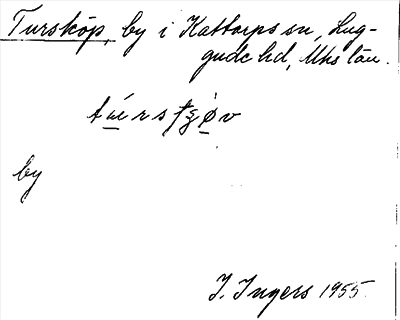 Turskӧp, by i Kattarps sn, Lug-
gude hd, Mhs län.
by
I. Ingers 1955.